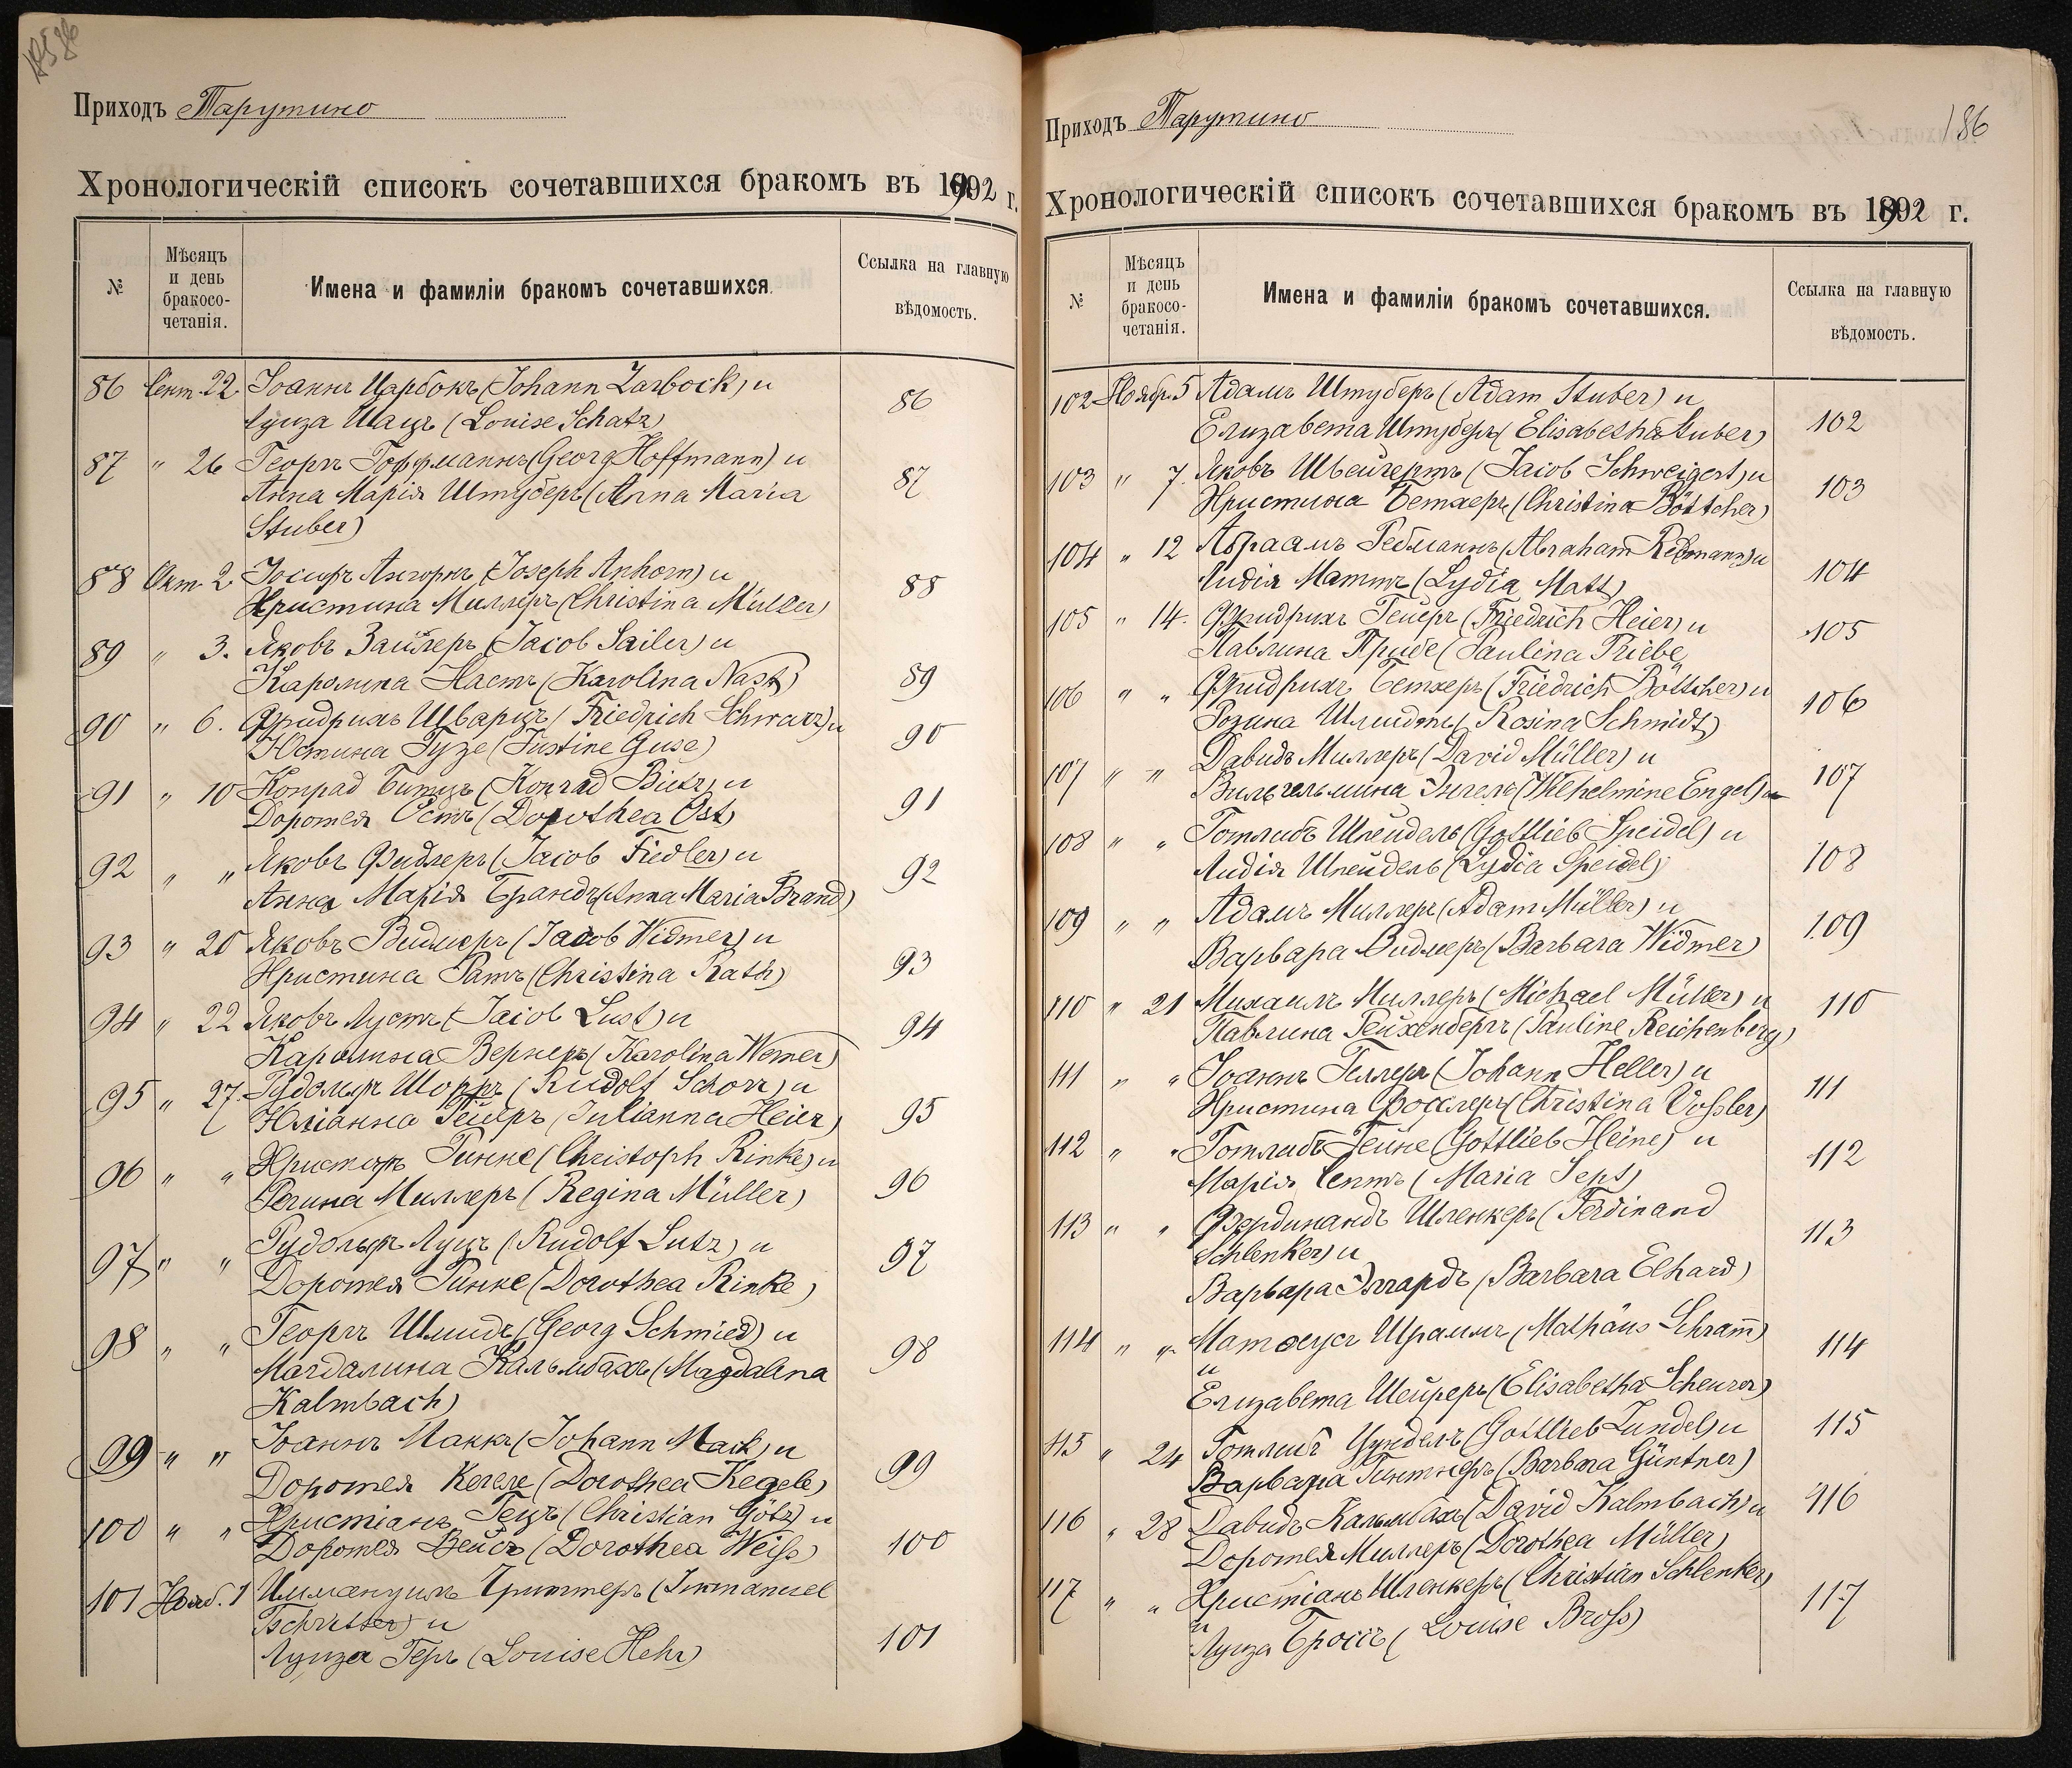 Приходъ Тарутино
Хронологическій списокъ сочетавшихся бракомъ въ 1892 г.
№
Мѣсяцъ
и день
бракосо-
четанія.
Имена и фамиліи бракомъ сочетавшихся.
Ссылка на главную
вѣдомость.
86 Сент. 22. Іоаннъ Царбокъ (Johann Zarbock) и
Луиза Шацъ (Louise Schatz) 86
87 " 26 Георгъ Гоффманнъ (Georg Hoffmann) и
Анна Марія Штуберъ (Anna Maria 87
Stuber)
88 Окт. 2 Іосифъ Ангорнъ (Joseph Anhorn) и
Христина Миллеръ (Christina Müller) 88
89 " 3. Яковъ Зайлеръ (Jacob Sailer) и
Каролина Настъ (Karolina Nast) 89
90 " 6. Фридрихъ Шварцъ (Friedrich Schwarz) и
Юстина Гузе (Justine Guse) 90
91 " 10 Конрад Битцъ (Konrad Bietz) и
Доротея Остъ (Dorothea Ost) 91
92 " " Яковъ Фидлеръ (Jacob Fiedler) и
Анна Марія Брандъ (Anna Maria Brand) 92
93 " 20 Яковъ Видмеръ (Jacob Widmer) и
Христина Ратъ (Christina Rath) 93
94 " 22 Яковъ Лустъ (Jacob Lust) и
Каролина Вернеръ (Karolina Werner) 94
95 " 27. Рудольфъ Шорръ (Rudolf Schorr) и
Юліанна Гейеръ (Julianna Heier) 95
96 " " Христофъ Ринке (Christoph Rinke) и
Регина Миллеръ (Regina Müller) 96
97 " " Рудольфъ Луцъ (Rudolf Lutz) и
Доротея Ринке (Dorothea Rinke) 97
98 " " Георгъ Шмидъ (Georg Schmied) и
Магдалина Кальмбахъ (Magdalena 98
Kalmbach)
99 " " Іоаннъ Маккъ (Johann Mack) и
Доротея Кегеле (Dorothea Kegele) 99
100 " " Христіанъ Гецъ (Christian Götz) и
Доротея Вейсъ (Dorothea Weiß) 100
101 Нояб. 1 Иммануилъ Чриттеръ (Immanuel
Tschritter) и
Луиза Геръ (Louise Hehr) 101
186
Приходъ Тарутино
Хронологическій списокъ сочетавшихся бракомъ въ 1892 г.
№
Мѣсяцъ
и день
бракосо-
четанія.
Имена и фамиліи бракомъ сочетавшихся.
Ссылка на главную
вѣдомость.
102 Ноябр. 5 Адамъ Штуберъ (Adam Stuber) и
Елизавета Штуберъ (Elisabetha Stuber) 102
103 " 7. Яковъ Швейгертъ (Jacob Schweigert) и
Христина Бетхеръ (Christina Böttcher) 103
104 " 12 Абраамъ Ребманнъ (Abraham Rebmann) и
Лидія Маттъ (Lydia Matt) 104
105 " 14. Фридрихъ Гейеръ (Friedrich Heier) и
Павлина Прибе (Paulina Priebe 105
106 " " Фридрихъ Бетхеръ (Friedrich Böttcher) и
Розина Шмидтъ (Rosina Schmidt) 106
107 " " Давидъ Миллеръ (David Müller) и
Вильгельмина Энгель (Wilhelmine Engel) 107
108 " " Готлибъ Шпейдель (Gottlieb Speidel) и
Лидія Шпейдель (Lydia Speidel) 108
109 " " Адамъ Миллеръ (Adam Müller) и
Варвара Видмеръ (Barbara Widmer) 109
110 " 21 Михаилъ Миллеръ (Michael Müller) и
Павлина Рейхенбергъ (Pauline Reichenberg) 110
111 " " Іоаннъ Геллеръ (Johann Heller) и
Христина Фосслеръ (Christina Voßler) 111
112 " " Готлибъ Гейне (Gottlieb Heine) и
Марія Септъ (Maria Sept) 112
113 " " Фердинандъ Шленкеръ (Ferdinand
Schlenker) и
Варвара Элгардъ (Barbara Elhard) 113
114 " " Матѳеусъ Шраммъ (Mathäus Schram̄)
и
Елизавета Шейреръ (Elisabetha Scheurer) 114
115 " 24 Готлибъ Цундель (Gottlieb Zundel) и
Варвара Гинтнеръ (Barbara Güntner) 115
116 " 28 Давидъ Кальмбахъ (David Kalmbach) и
Доротея Миллеръ (Dorothea Müller) 116
117 " " Христіанъ Шленкеръ (Christian Schlenker)
и
Луиза Броссъ (Louise Broß) 117